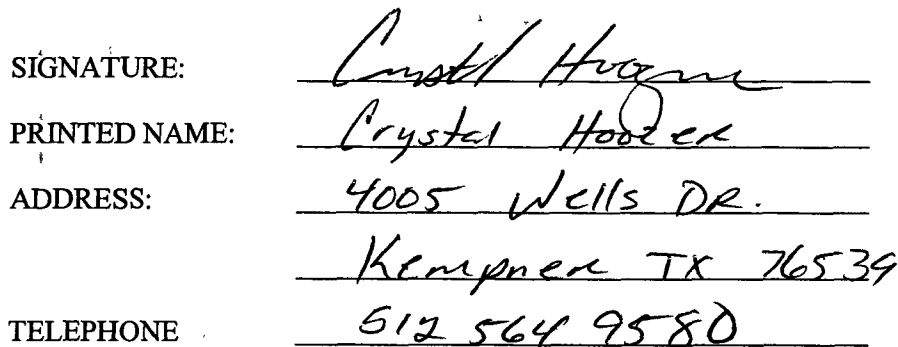 SIGNATURE: Crystal Hoozer
PRINTED NAME: Crystal Hoozer
ADDRESS: 4005 Wells DR.
Kempner TX 76539
TELEPHONE 512 564 9580